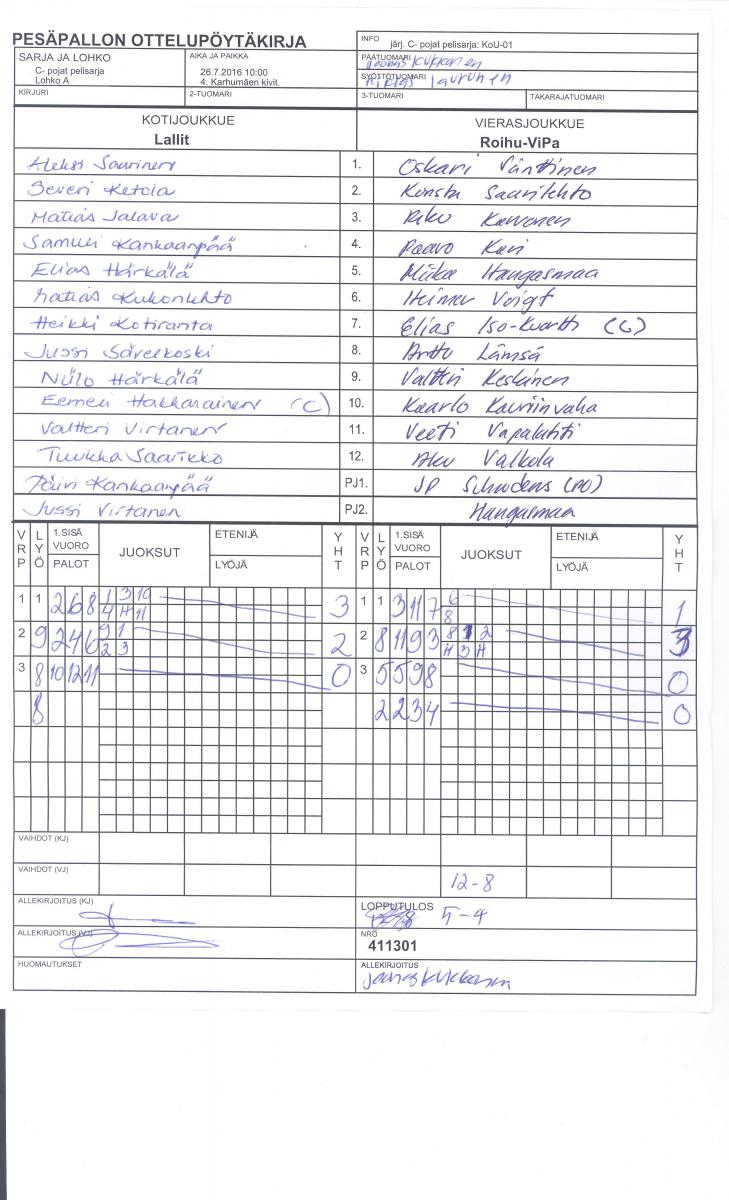 PESÄPALLON OTTELUPÖYTÄKIRJA
INFO järj. C- pojat pelisarja: KoU-01
SARJA JA LOHKO
C- pojat pelisarja
Lohko A
AIKA JA PAIKKA
26.7.2016 10:00
4. Karhumäen kivit.
PÄÄTUOMARI Joonas Kukkonen
SYÖTTÖTUOMARI Niklas Laurunen
KIRJURI
2-TUOMARI
3-TUOMARI
TAKARAJATUOMARI
KOTIJOUKKUE
Lallit
VIERASJOUKKUE
Roihu-ViPa
Aleksi Saarinen 1. Oskari Vänttinen
Severi Ketola 2. Konsta Saarilehto
Matias Jalava 3. Riku
Samuli Kankaanpää 4. Paavo
Elias Härkälä 5. Miika Hangasmaa
Matias Kukonlehto 6. Heimer Voigt
Heikki Kotiranta 7. Elias (C)
Jussi Säveskoski 8. Arttu Lämsä
Niilo Härkälä 9. Valtteri Keskinen
Eemeli Hakkarainen (C) 10. Kaarlo Kauriinvaha
Valtteri Virtanen 11. Veeti Vapalahti
Tuukka Saarikko 12. Aku Valkola
Päivi Kankaanpää PJ1. JP
Jussi Virtanen PJ2. Hangasmaa
VRP LYÖ 1.SISÄ VUORO PALOT JUOKSUT ETENIJÄ LYÖJÄ YHT VRP LYÖ 1.SISÄ VUORO PALOT JUOKSUT ETENIJÄ LYÖJÄ YHT
1 1 2 6 8 1 3 10 3 1 1 3 11 7 6 1
4 H 11 8
2 9 2 4 6 9 1 2 2 8 11 9 3 8 1 2 3
2 3 H 3 H
3 8 10 12 11 0 3 5 5 9 8 0
8 2 2 3 4 0
VAIHDOT (KJ)
VAIHDOT (VJ)
12-8
ALLEKIRJOITUS (KJ)
LOPPUTULOS 5-4
ALLEKIRJOITUS (VJ)
NRO
411301
HUOMAUTUKSET
ALLEKIRJOITUS
Joonas Kukkonen